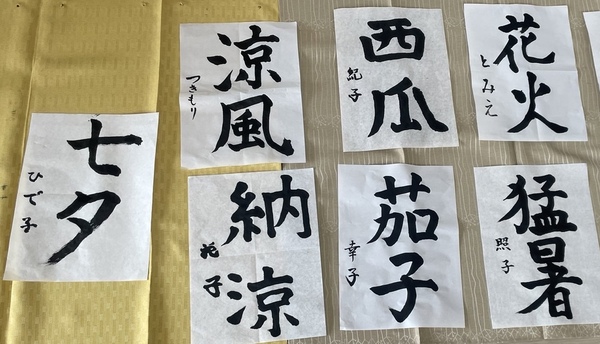 花火
とみえ
西瓜
紀子
涼風
つきもり
七夕
ひで子
猛暑
照子
茄子
幸子
納涼
子